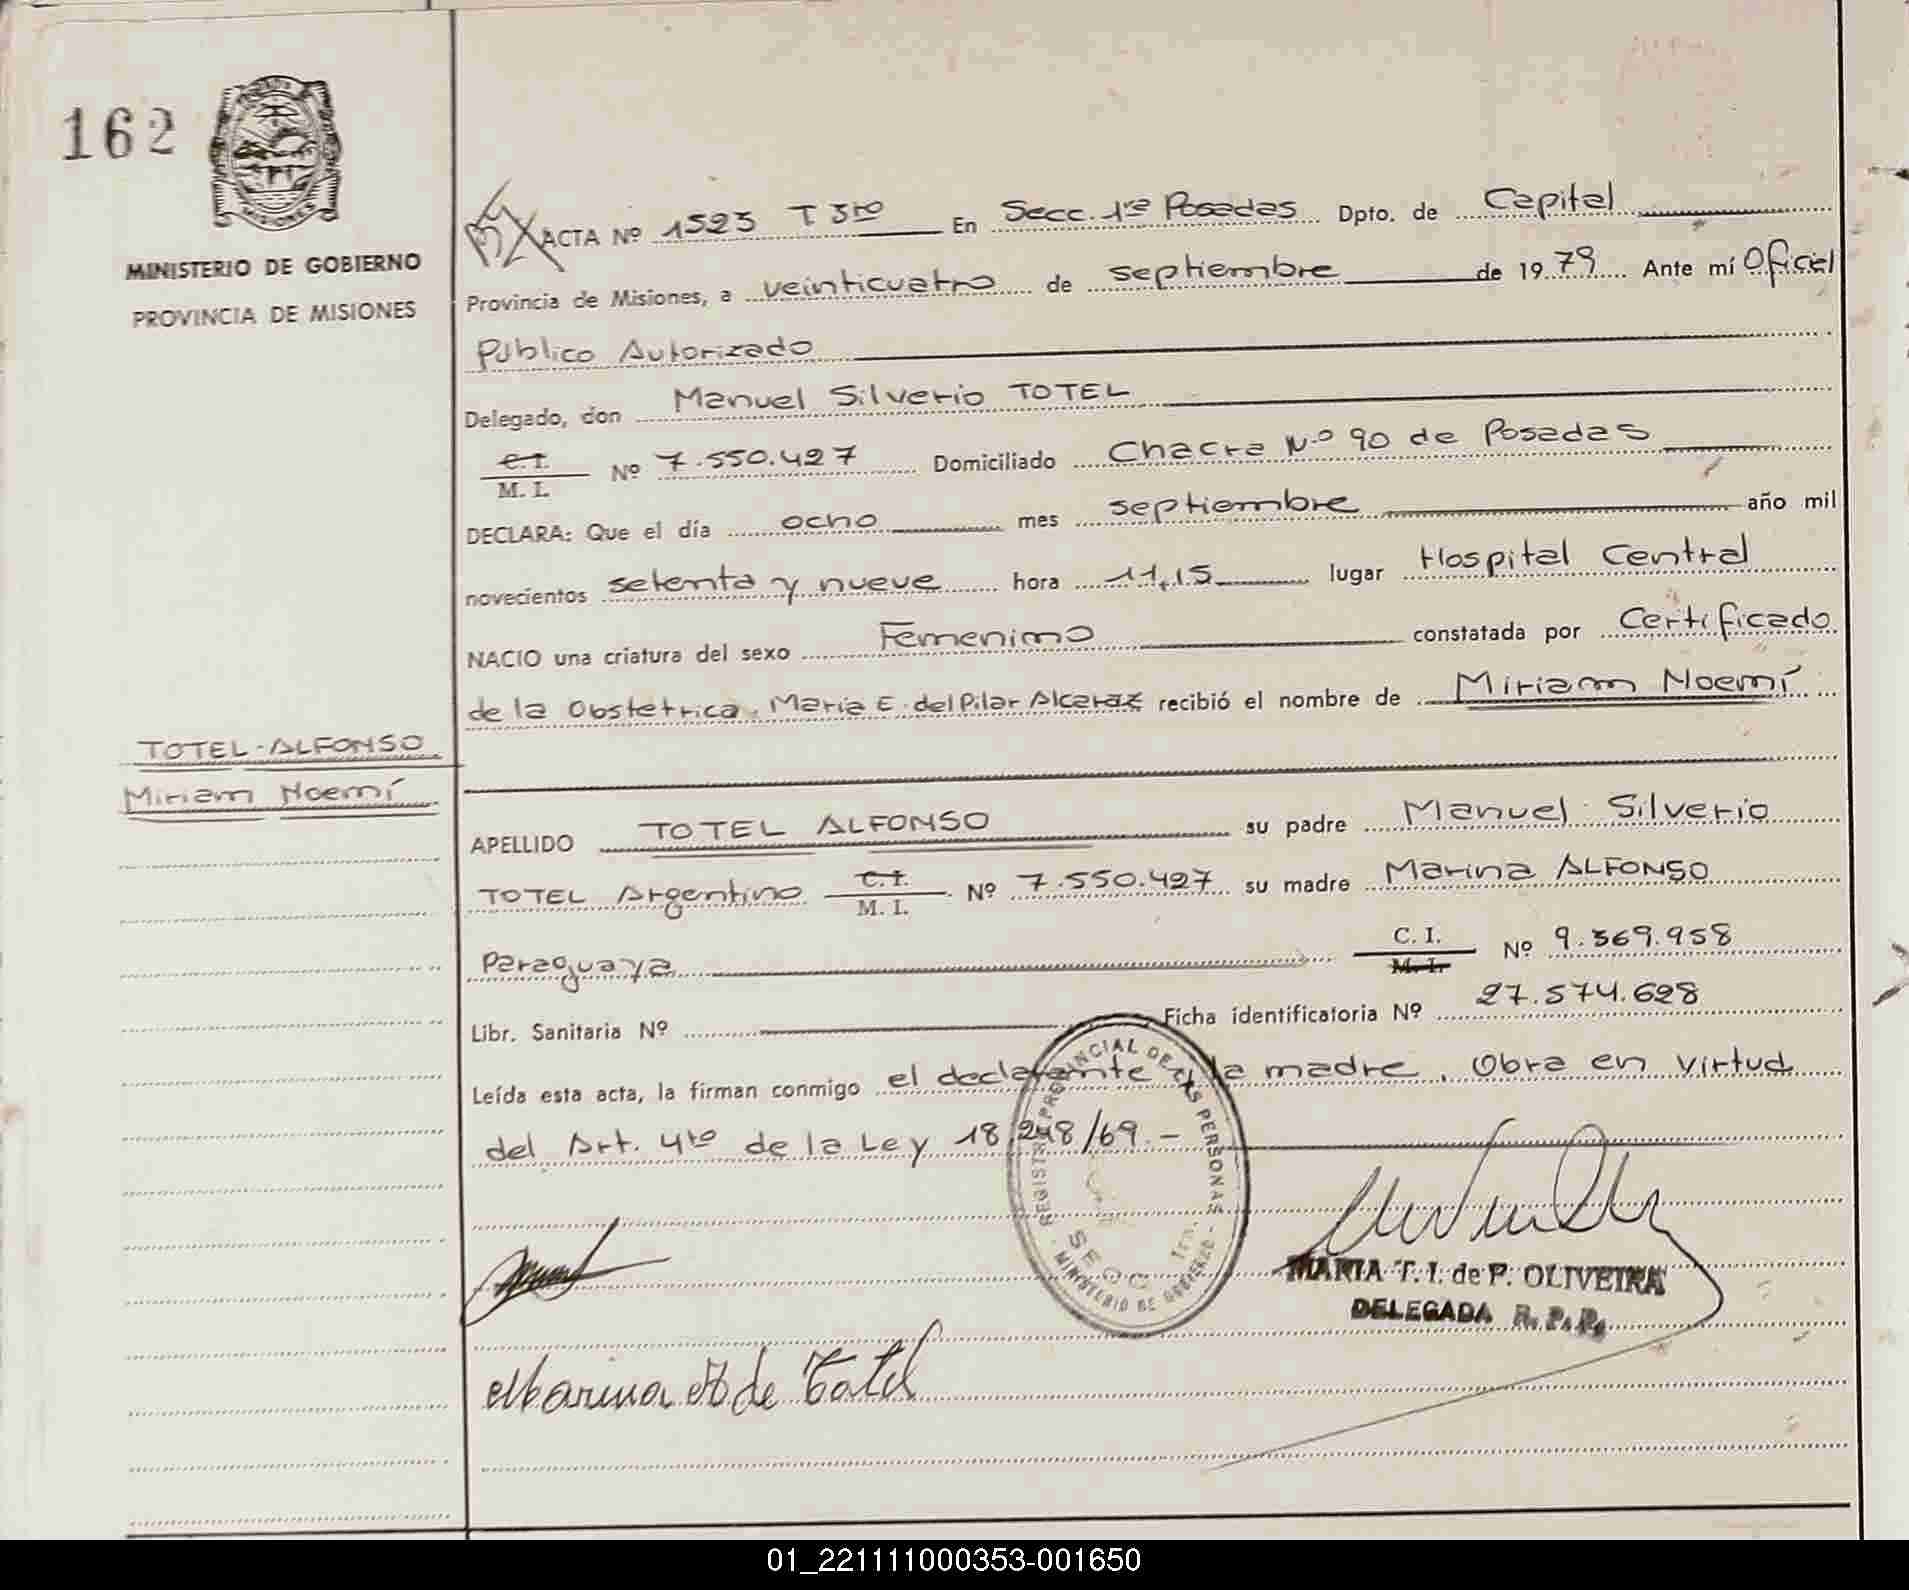 162
MISIONES
MINISTERIO DE GOBIERNO
PROVINCIA DE MISIONES
TOTEL-ALFONSO
Miriam Noemí
ACTA Nº 1523 T 3ro En Secc. 1ra Posadas Dpto. de Capital
Provincia de Misiones, a veinticuatro de septiembre de 1979 Ante mí Oficial
Público Autorizado
Delegado, don Manuel Silverio TOTEL
C.I.
M. I. Nº 7.550.427 Domiciliado Chacra Nº 90 de Posadas
DECLARA: Que el día ocho mes septiembre año mil
novecientos setenta y nueve hora 11,15 lugar Hospital Central
NACIO una criatura del sexo Femenino constatada por Certificado
de la Obstetrica. Maria E. del Pilar Alcaraz recibió el nombre de Miriam Noemí
APELLIDO TOTEL ALFONSO su padre Manuel Silverio
TOTEL Argentino C.I. M. I. Nº 7.550.427 su madre Marina ALFONSO
Paraguaya C. I. M. I. Nº 9.369.958
Libr. Sanitaria Nº Ficha identificatoria Nº 27.574.628
Leída esta acta, la firman conmigo el declarante y la madre. Obra en virtud
del Art. 4to de la Ley 18.248/69.-
REGISTRO PROVINCIAL DE LAS PERSONAS - MINISTERIO DE GOBIERNO -
SECC 1ra.
MARIA T. I. de P. OLIVEIRA
DELEGADA R. P. P.
Marina A de Totel
01_221111000353-001650